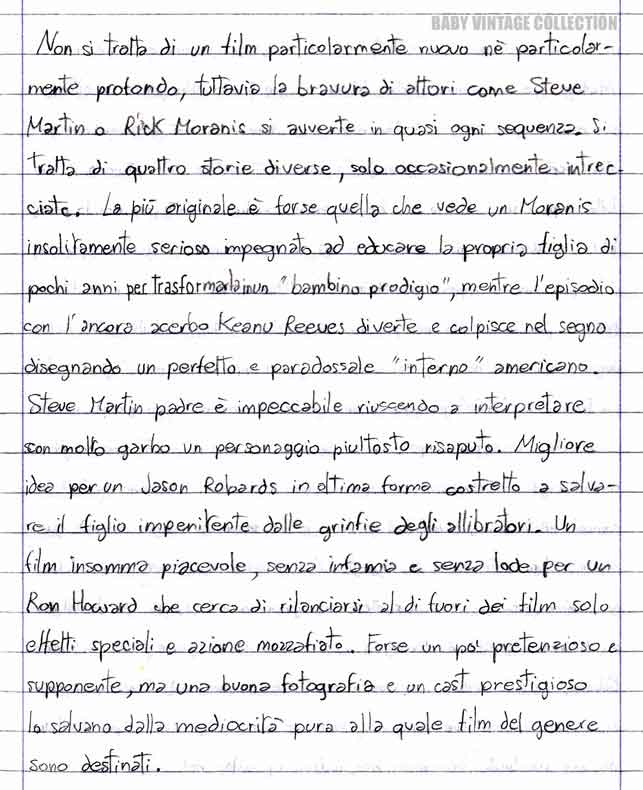 BABY VINTAGE COLLECTION
Non si tratta di un film particolarmente nuovo nè particolar-
mente profondo, tuttavia la bravura di attori come Steve
Martin o Rick Moranis si avverte in quasi ogni sequenza. Si
tratta di quattro storie diverse, solo occasionalmente intrec-
ciate. La più originale è forse quella che vede un Moranis
insolitamente serioso impegnato ad educare la propria figlia di
pochi anni per trasformarla in un "bambino prodigio", mentre l'episodio
con l'ancora acerbo Keanu Reeves diverte e colpisce nel segno
disegnando un perfetto e paradossale "interno" americano.
Steve Martin padre è impeccabile riuscendo a interpretare
con molto garbo un personaggio piuttosto risaputo. Migliore
idea per un Jason Robards in ottima forma costretto a salva-
re il figlio impenitente dalle grinfie degli allibratori. Un
film insomma piacevole, senza infamia e senza lode per un
Ron Howard che cerca di rilanciarsi al di fuori dei film solo
effetti speciali e azione mozzafiato. Forse un po' pretenzioso e
supponente, ma una buona fotografia e un cast prestigioso
lo salvano dalla mediocrità pura alla quale film del genere
sono destinati.